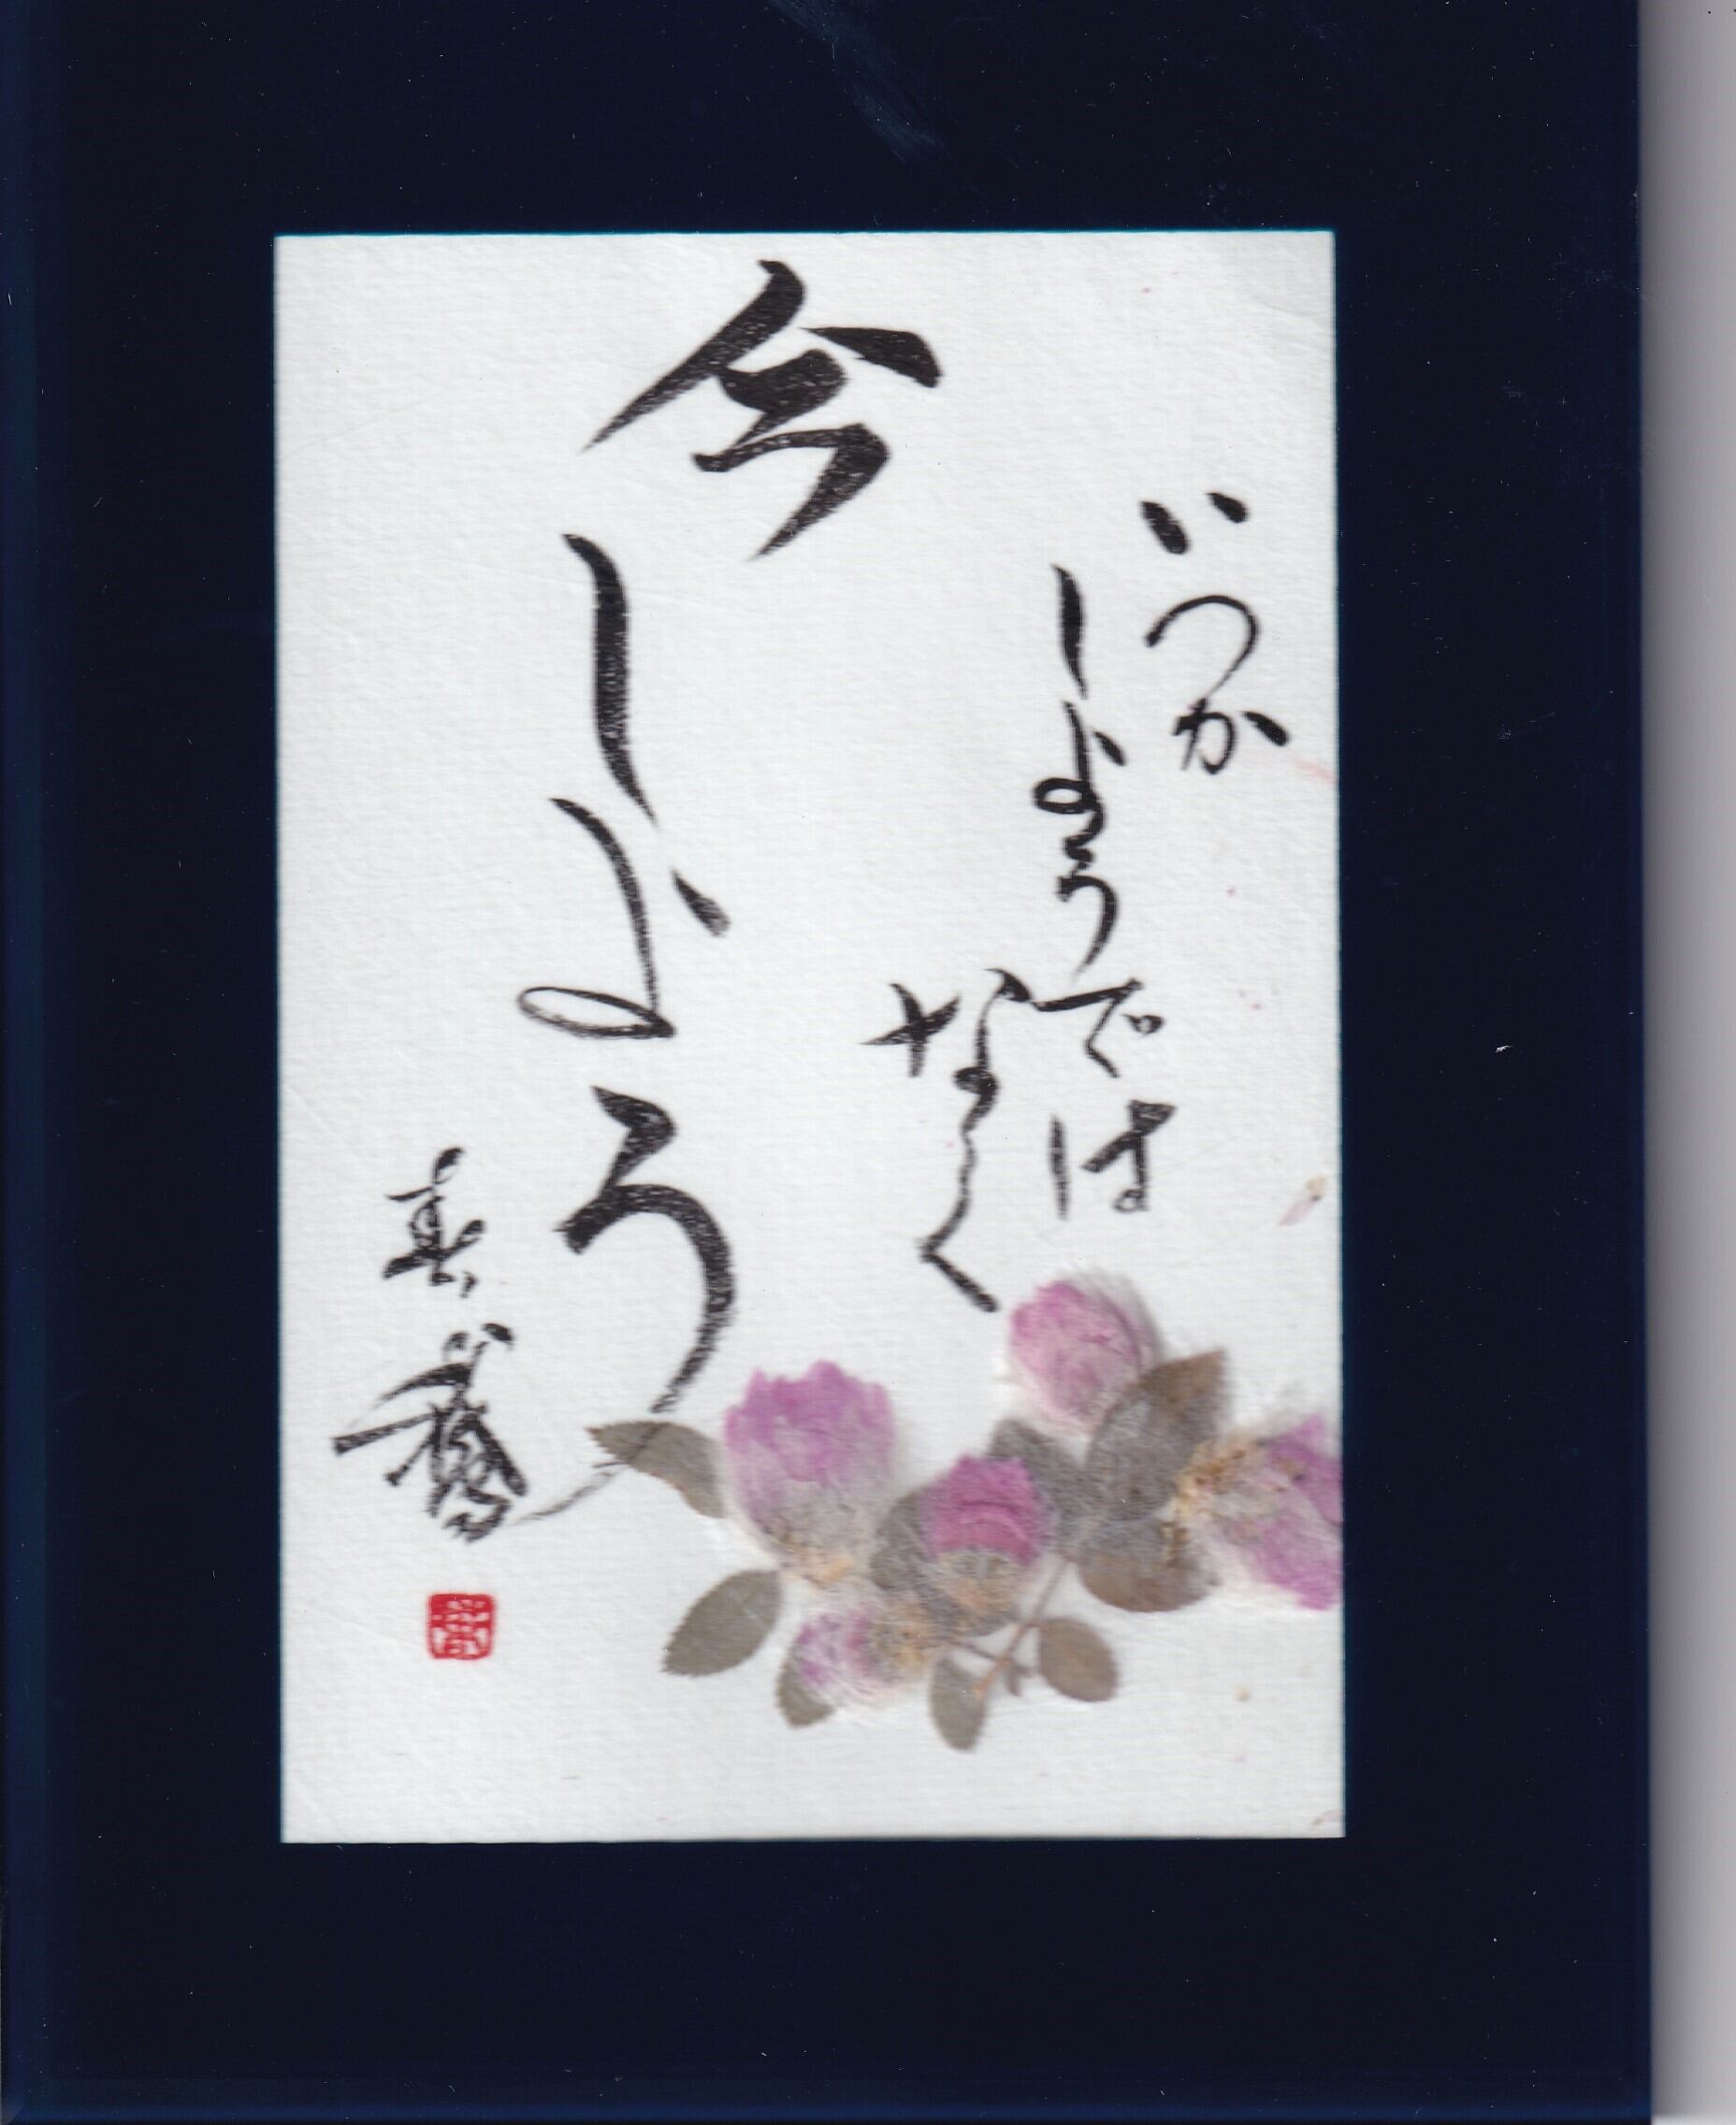 いつか
しようでは
なく
今
しよう